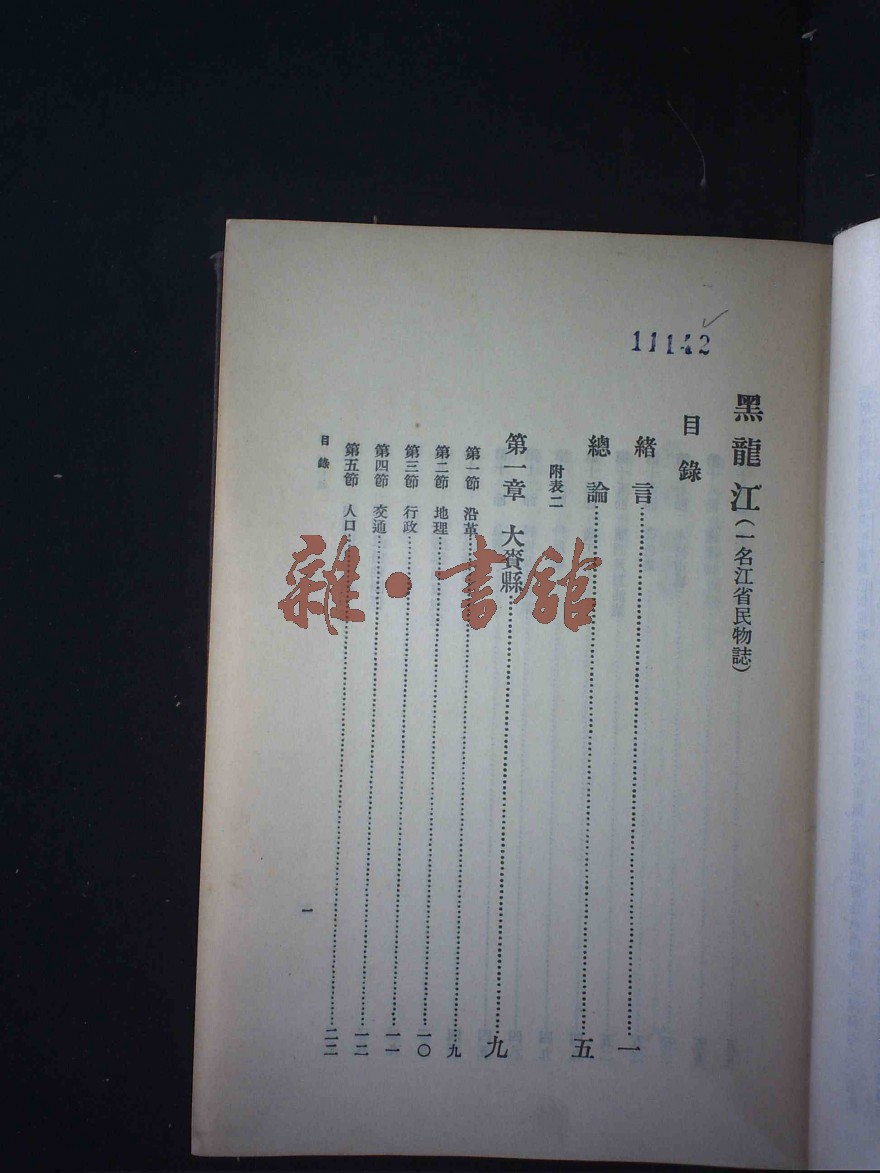 11142
黑龍江（一名江省民物誌）
目錄
緒言……一
總論……五
附表二
第一章 大賚縣……九
第一節 沿革……九
第二節 地理……一〇
第三節 行政……一一
第四節 交通……一二
第五節 人口……二二
目錄
一
雜·書館